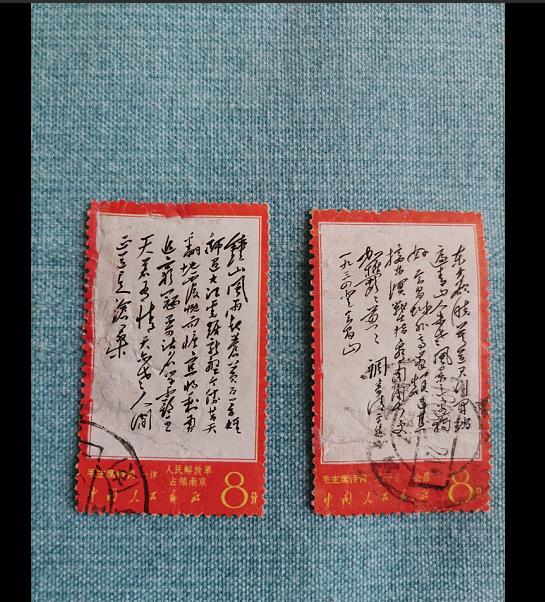 鍾山風雨起蒼黄百万雄
師过大江虎踞龍盤今胜昔天
翻地覆慨而慷宜将剩勇
追穷寇不可沽名学霸王
天若有情天亦老人间
正道是滄桑
毛主席诗词 七律 人民解放軍
占領南京
中国人民邮政 8分
东方欲晓莫道君行早踏
遍青山人未老風景这边独
好会昌城外高峰颠连直
接东溟戰士指看南粤更
加鬱鬱葱葱 調寄清平乐
一九三四年登会昌山
毛主席诗词 清平乐 会昌
中国人民邮政 8分